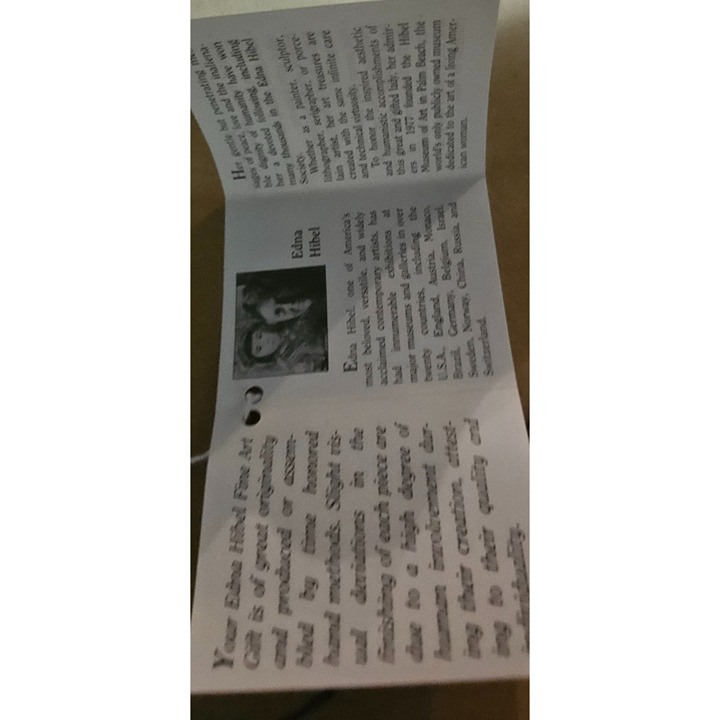 Your Edna Hibel Fine Art
Gift is of great originality
and produced or assem-
bled by time honored
hand methods. Slight vis-
ual deviations in the
finishing of each piece are
due to a high degree of
human involvement dur-
ing their creation, attest-
ing to their quality and
individuality.
Edna
Hibel
Edna Hibel, one of America's
most beloved, versatile, and widely
acclaimed contemporary artists, has
had innumerable exhibitions at
major museums and galleries in over
twenty countries, including the
U.S.A., England, Austria, Monaco,
Brazil, Germany, Belgium, Israel,
Sweden, Norway, China, Russia, and
Switzerland.
Her gentle but penetrating mes-
sages of peace, love and the inaliena-
ble dignity of humanity have won
her a devoted following, including
many thousands in the Edna Hibel
Society.
Whether as a painter, sculptor,
lithographer, serigrapher, or porce-
lain artist, her art treasures are
created with the same infinite care
and technical virtuosity.
To honor the inspired aesthetic
and humanistic accomplishments of
this great and gifted lady, her admir-
ers in 1977 founded the Hibel
Museum of Art in Palm Beach, the
world's only publicly owned museum
dedicated to the art of a living Ameri-
can woman.